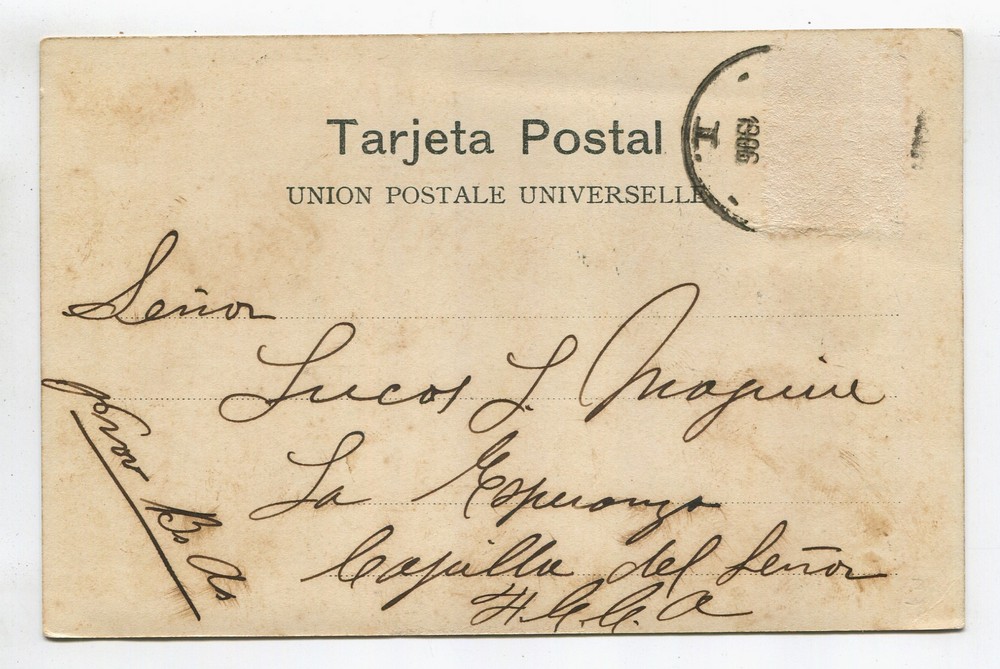 Tarjeta Postal
UNION POSTALE UNIVERSELLE
1906
Señor
Lucas S. Maguire
La Esperanza
Capilla del Señor
F.C.C.A
Prov Bs As